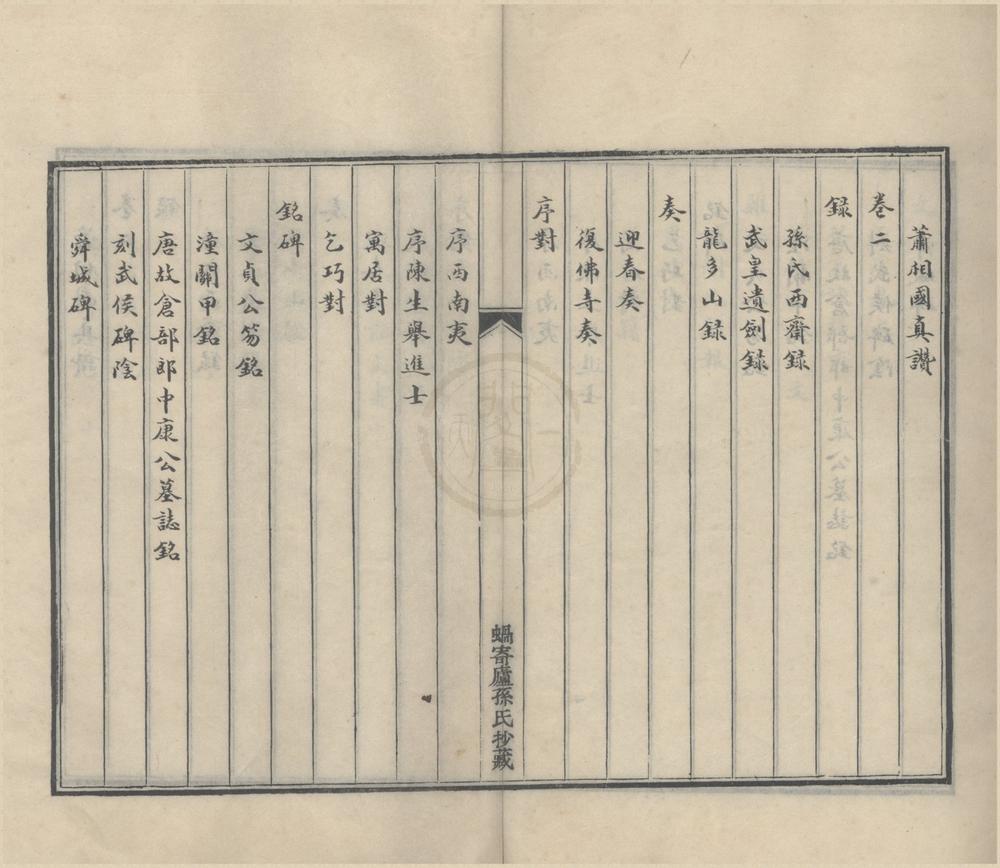 蕭相國真讚
卷二
錄
孫氏西齋錄
武皇遺劍錄
龍多山錄
奏
迎春奏
復佛寺奏
序對
蝸寄廬孫氏抄藏
序西南夷
序陳生舉進士
寓居對
乞巧對
銘碑
文貞公笏銘
潼關甲銘
唐故倉部郎中康公墓誌銘
刻武侯碑陰
舜城碑